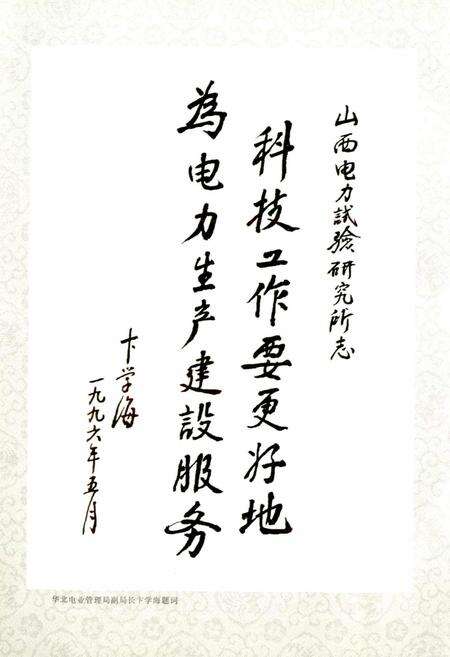 山西电力試驗研究所志
科技工作要更好地
為电力生产建設服务
卞学海
一九九六年五月
华北电业管理局副局长卞学海题词